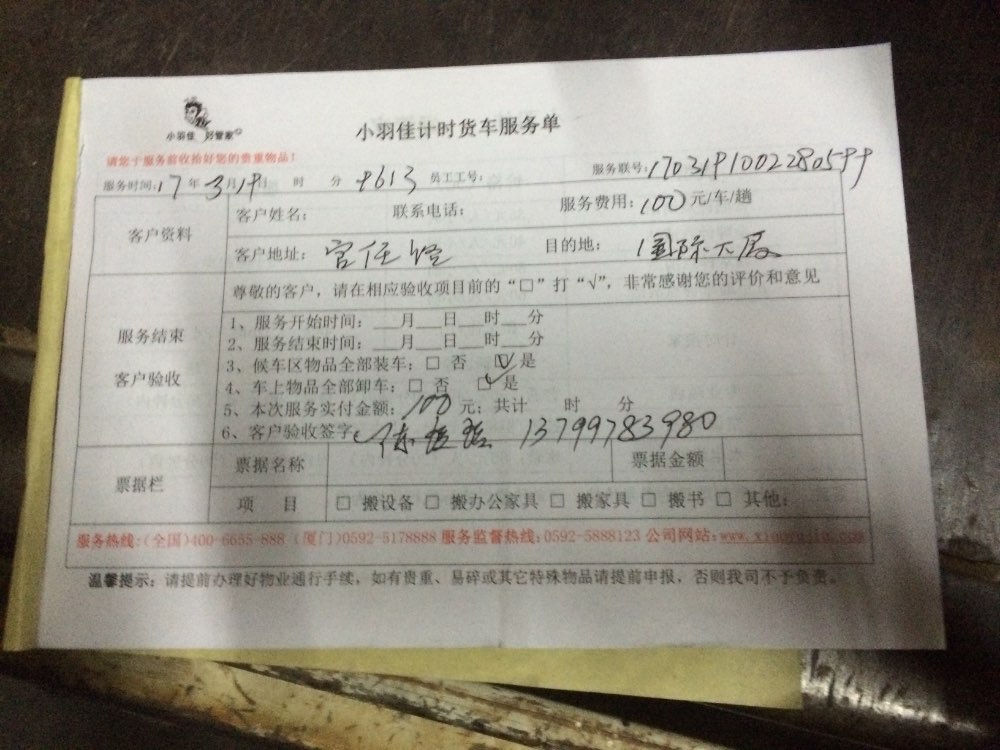 小羽佳 好管家
小羽佳计时货车服务单
请您于服务前收拾好您的贵重物品!
服务时间: 17 年 3 月 19 日 时 分 员工工号: 服务联号: 170319100228059
客户资料
客户姓名: 联系电话: 服务费用: 100 元/车/趟
客户地址: 官任 目的地: 国际大厦
尊敬的客户，请在相应验收项目前的“□”打“√”，非常感谢您的评价和意见
服务结束
客户验收
1、服务开始时间: ___月___日___时___分
2、服务结束时间: ___月___日___时___分
3、候车区物品全部装车: □ 否 ☑ 是
4、车上物品全部卸车: □ 否 ☑ 是
5、本次服务实付金额: 100 元; 共计 时 分
6、客户验收签字: 13799783980
票据栏
票据名称 票据金额
项 目 □ 搬设备 □ 搬办公家具 □ 搬家具 □ 搬书 □ 其他:
服务热线:(全国)400-6655-888 (厦门)0592-5178888 服务监督热线:0592-5888123 公司网站:
温馨提示: 请提前办理好物业通行手续，如有贵重、易碎或其它特殊物品请提前申报，否则我司不予负责。